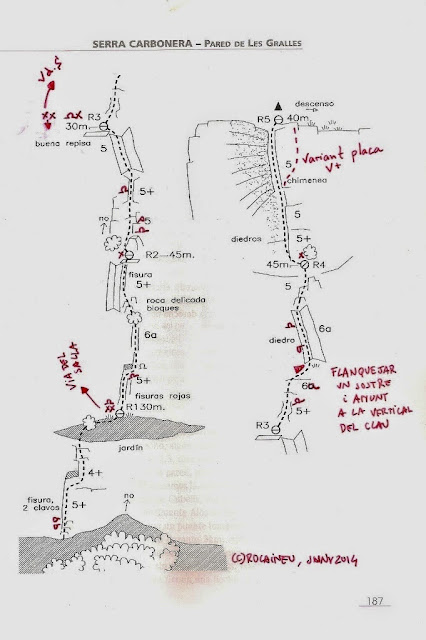 SERRA CARBONERA – PARED DE LES GRALLES
Vd.g
xx
R3
30m.
buena repisa
5
5+
no
5
x
R2—45m.
fisura
5+
roca delicada
bloques
6a
VIA DEL
5+
fisuras rojas
R1 30m.
jardín
4+
fisura,
2 clavos
5+
no
descenso
R5
40m.
5
variant placa
V+
chimenea
5
diedros
5+
x
45m.
R4
5
6a
diedro
6a
FLANQUEJAR
UN SOSTRE
i AMUNT
A LA VERTICAL
DEL CLAU
R3
5+
(C)ROCAINEU, JUNY 2014
187